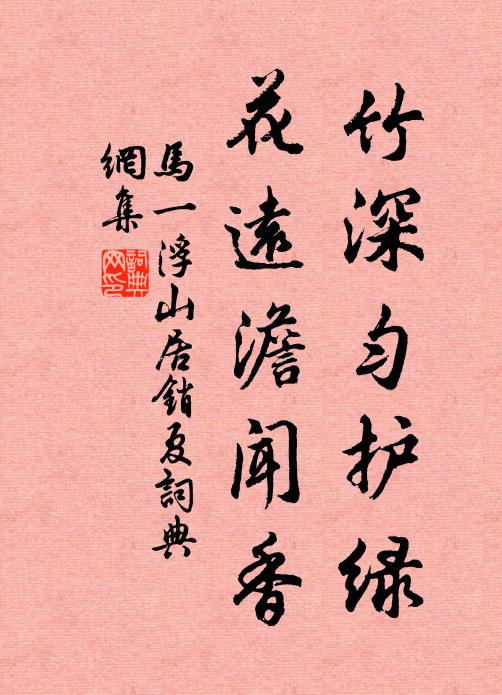 竹深匀护绿
花遠澹闻香
馬一浮山居銷夏詞典
網集
詞典网印